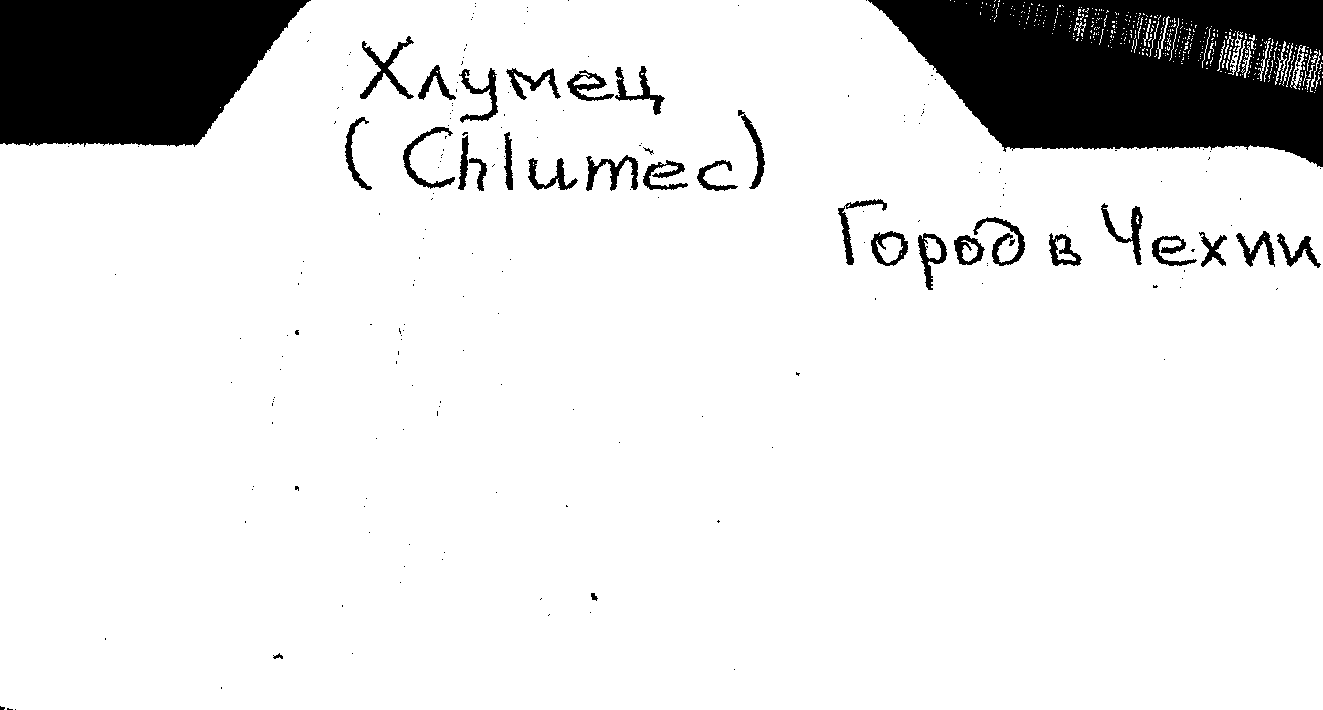 Хлумец
(Chlumec)
Город в Чехии